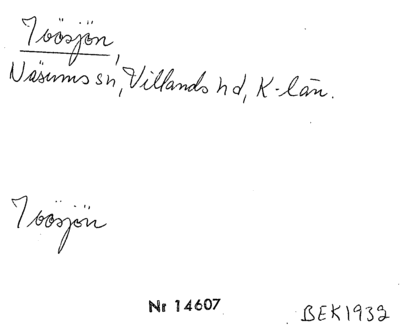 Ivösjön,
Näsums sn, Villands hd, K-län.
Ivösjön
Nr 14607
BEK1932